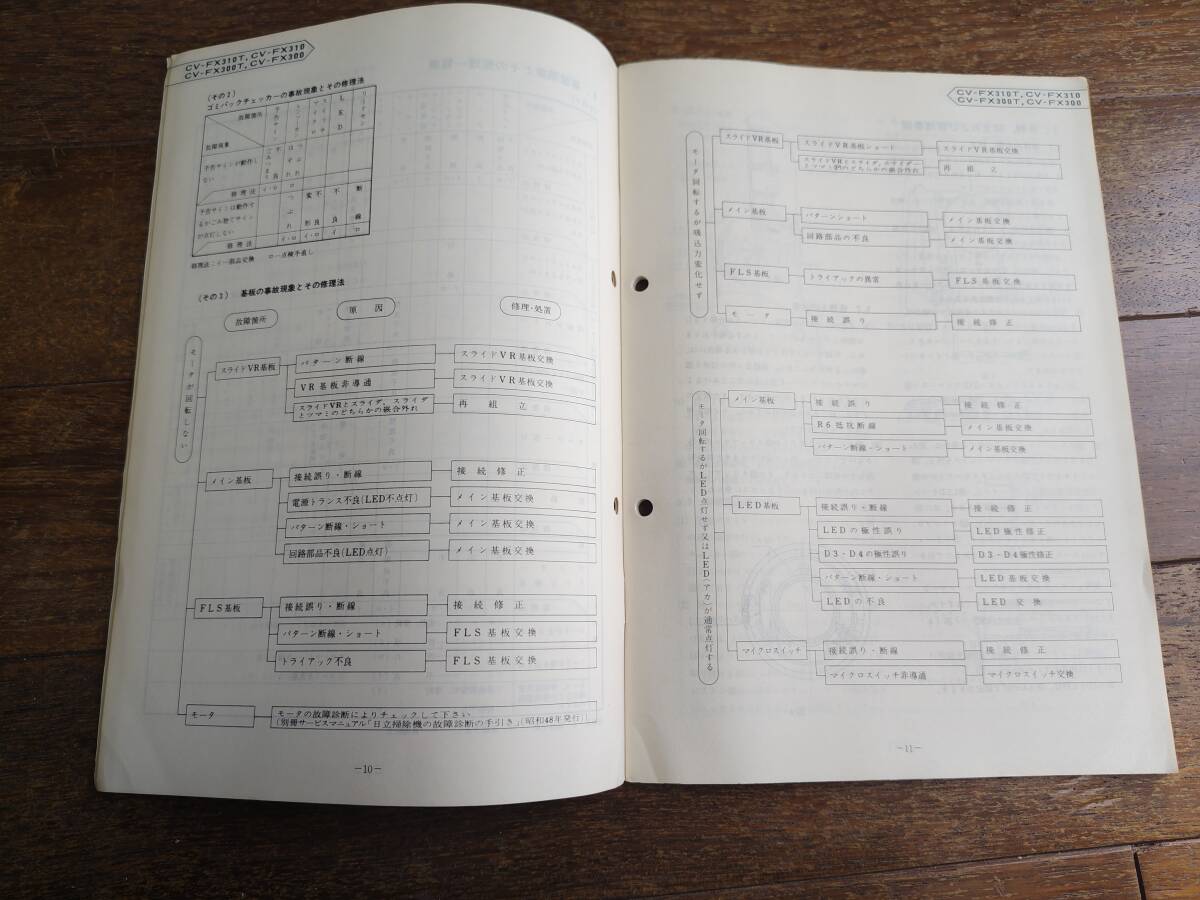 CV-FX310T, CV-FX310
CV-FX300T, CV-FX300
(その2)
ゴミパックチェッカーの事故現象とその修理法
故障箇所
故障現象
LED
予告サインが動作し
ない
修理法
イ・ロ
ロ
予告サインは動作す
るがごみ捨てサイン
が点灯しない
つぶれ
変形
不良
不良
断線
修理法
イ・ロ
イ・ロ
イ
ロ
修理法:イ―部品交換 ロ―点検手直し
(その3) 基板の事故現象とその修理法
故障箇所
原因
修理・処置
モータが回転しない
スライドVR基板
パターン断線
スライドVR基板交換
VR基板非導通
スライドVR基板交換
スライドVRとスライダ、スライダ
とツマミのどちらかの嵌合外れ
再組立
メイン基板
接続誤り・断線
接続修正
電源トランス不良(LED不点灯)
メイン基板交換
パターン断線・ショート
メイン基板交換
回路部品不良(LED点灯)
メイン基板交換
FLS基板
接続誤り・断線
接続修正
パターン断線・ショート
FLS基板交換
トライアック不良
FLS基板交換
モータ
モータの故障診断によりチェックして下さい
(別冊サービスマニュアル「日立掃除機の故障診断の手引き」(昭和48年発行))
−10−
CV-FX310T, CV-FX310
CV-FX300T, CV-FX300
モータ回転するが吸込力変化せず
スライドVR基板
スライドVR基板ショート
スライドVR基板交換
スライドVRとスライダ、スライダー
とツマミ間のどちらかの嵌合外れ
再組立
メイン基板
パターンショート
メイン基板交換
回路部品の不良
メイン基板交換
FLS基板
トライアックの異常
FLS基板交換
モータ
接続誤り
接続修正
モータ回転するがLED点灯せず又はLED(アカ)が通常点灯する
メイン基板
接続誤り
接続修正
R6抵抗断線
メイン基板交換
パターン断線・ショート
メイン基板交換
LED基板
接続誤り・断線
接続修正
LEDの極性誤り
LED極性修正
D3・D4の極性誤り
D3・D4極性修正
パターン断線・ショート
LED基板交換
LEDの不良
LED交換
マイクロスイッチ
接続誤り・断線
接続修正
マイクロスイッチ非導通
マイクロスイッチ交換
−11−